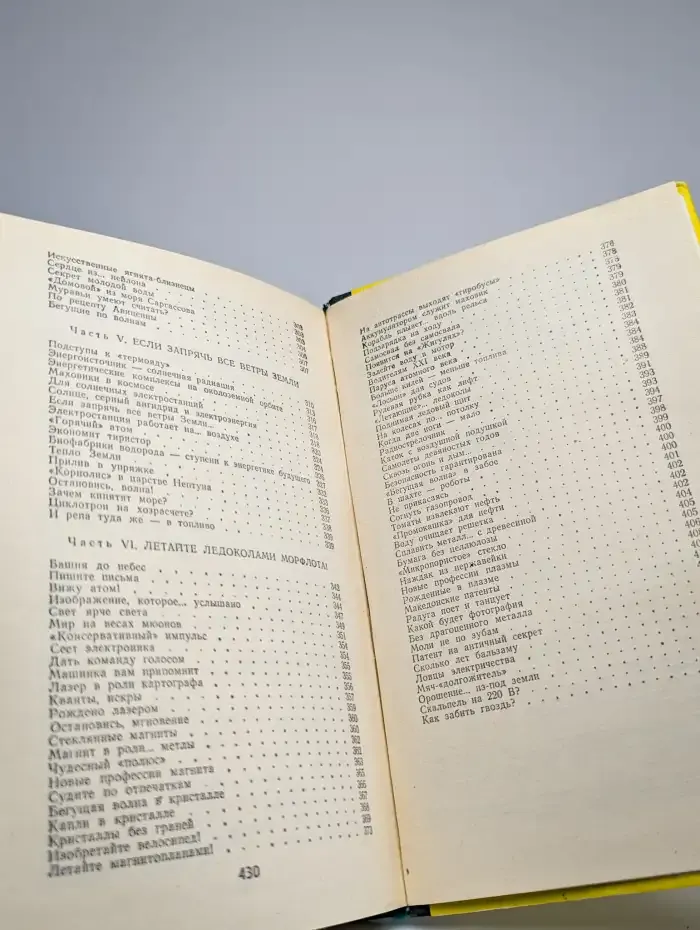 Искусственные ягнята-близнецы
Сердце из... нейлона
Секрет молодой воды
«Домовой» из моря Саргассова
Муравьи умеют считать?
По рецепту Авиценны
Бегущие по волнам
Часть V. ЕСЛИ ЗАПРЯЧЬ ВСЕ ВЕТРЫ ЗЕМЛИ
Подступы к «термояду»
Энергоисточник — солнечная радиация
Энергетические комплексы на околоземной орбите
Маховики в космосе
Для солнечных электростанций
Солнце, серный ангидрид и электроэнергия
Если запрячь все ветры Земли...
Электростанция работает на... воздухе
«Горячий» атом
Экономит тиристор
Биофабрики водорода — ступени к энергетике будущего
Тепло Земли
Прилив в упряжке
«Корнолис» в царстве Нептуна
Остановись, волна!
Зачем кипятит море?
Циклотрон на хозрасчете?
И репа туда же — в топливо
Часть VI. ЛЕТАЙТЕ ЛЕДОКОЛАМИ МОРФЛОТА!
Башня до небес
Пишите письма
Вижу атом! 343
Изображение, которое... услышано 344
Свет ярче света 344
Мир на весах мюонов 347
«Консервативный» импульс 349
Сеет электроника 351
Дать команду голосом 354
Машинка вам припомнит 354
Лазер в роли картографа 355
Кванты, искры 356
Рождено лазером 357
Остановись, мгновение 359
Стеклянные магниты 360
Магнит в роли... метлы
Чудесный «полюс»
Новые профессии магнита
Судите по отпечаткам
Бегущая волна в кристалле
Капли в кристалле
Кристаллы без граней
Изобретайте велосипед!
Летайте магнитопланами! 373
430
На автотрассы выходят «гиробусы» 376
Аккумулятором служит маховик 378
Корабль плывет... вдоль рельса 375
Подзарядка на ходу 379
Самосвал без самосвала 379
Появится на «Жигулях»? 380
Залейте воду в мотор 381
Водителям XXI века 381
Паруса атомного века 382
Больше килей — меньше топлива 383
«Лосьон» для судов 384
Рулевая рубка как лифт 384
«Летающие»... ледоколы 384
Поднимая ледовый щит 388
На колесах по... потолку 389
Когда две ноги — мало 391
Радиострелочник 393
Каток с воздушной подушкой 393
Самолеты девяностых годов 394
Сквозь огонь и дым... 397
Безопасность гарантирована 398
«Бегущая волна» в забое 399
В шахте — роботы 400
Не прикасаясь 400
Согнуть газопровод 400
Томаты извлекают нефть 401
«Промокашка» для нефти 402
Воду очищает решетка 402
Сплавить металл... с древесиной 402
Бумага без целлюлозы 404
«Микропористое» стекло 405
Наждак из нержавейки 405
Новые профессии плазмы
Рожденные в плазме
Македонские патенты
Радуга поет и танцует
Какой будет фотография
Без драгоценного металла
Моли не по зубам
Патент на античный секрет
Сколько лет бальзаму
Ловцы электричества
Мяч-«долгожитель»
Орошение... из-под земли
Скальпель на 220 В?
Как забить гвоздь?